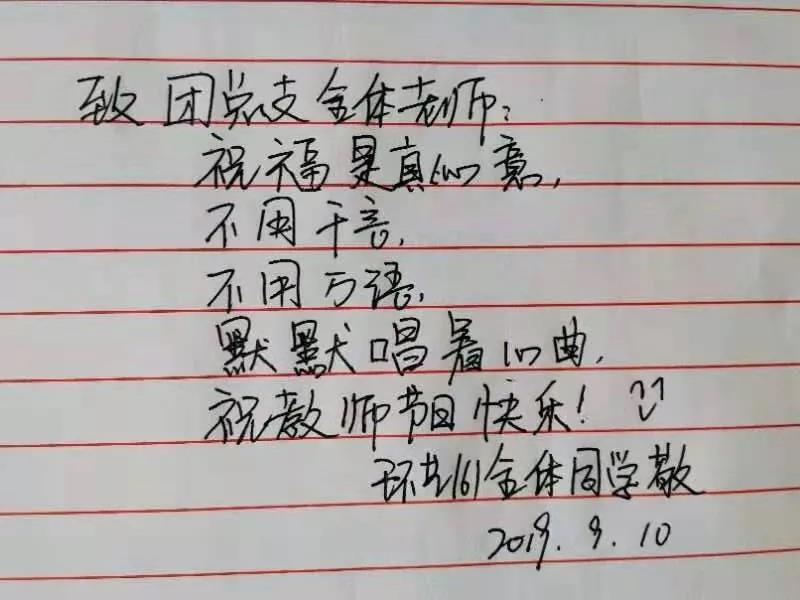 致 团党支全体老师:
祝福是真心意,
不用千言,
不用万语,
默默唱着心曲,
祝教师节日快乐!
环艺161全体同学敬
2019.9.10